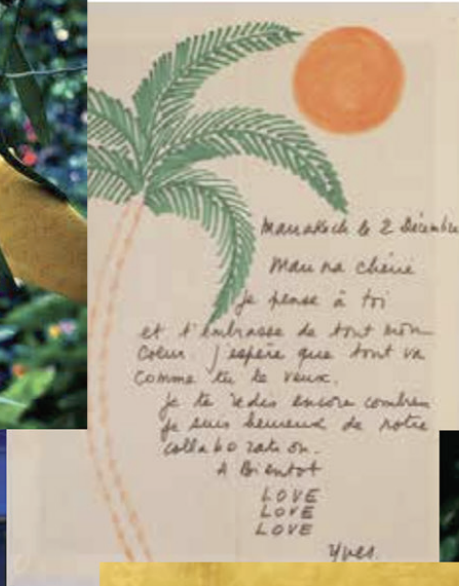 Marrakech le 2 Décembre
chérie
je pense à toi
et t'embrasse de tout mon
Coeur j'espère que tout va
Comme tu le veux.
je te redis encore combien
je suis heureux de notre
collaboration.
A Bientot
LOVE
LOVE
LOVE
Yves.